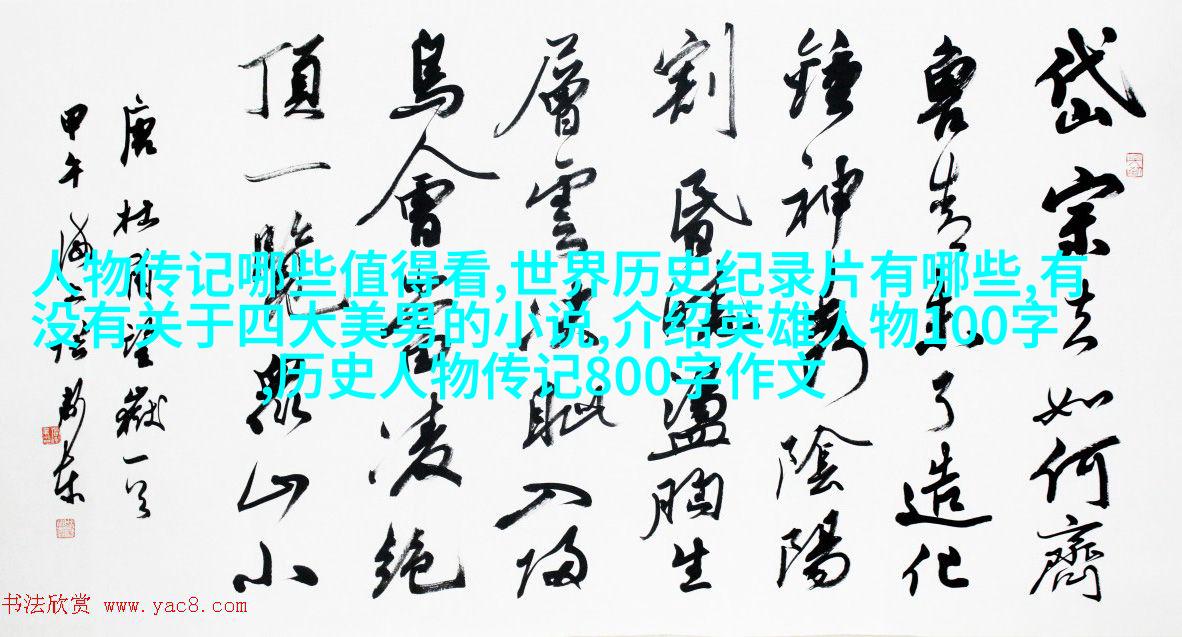 岱宗夫如何齊
魯青未了造化
鍾神秀陰陽
割昏曉盪胸生
層雲決眦入歸
鳥會當凌絕
頂一覽眾山小
唐杜甫望嶽一首
甲午
人物传记哪些值得看,世界历史纪录片有哪些,有
没有关于四大美男的小说,介绍英雄人物100字
,历史人物传记800字作文
书法欣赏 www.yac8.com